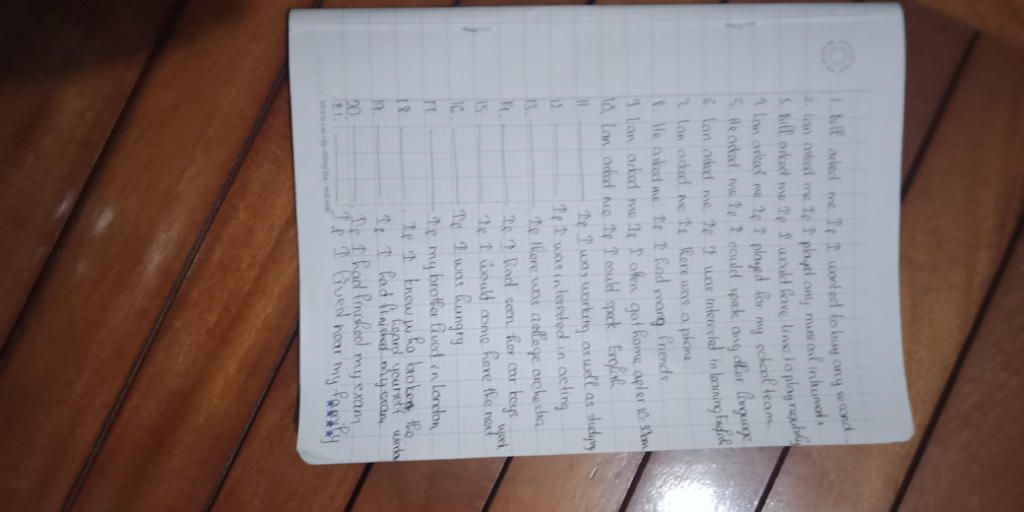 1. Bill asked me If I wanted to buy any record...
2. Ian asked me If I played any musical instruments
3. Bill asked me If I would have time to play regularly
4 Ian asked me If I played for my school team
5. He asked me If I could speak any other language
6 Ian asked me If I was interested in learning English
7 Ian asked me If there was a phone
8. He asked me If I had many friends
9 Ian asked me If I often got home after 10:30pm
10. Ian asked me If I could speak English
11. If I was working as well as studying
12 If I was intersted in acting
13. If there was a college orchestra
14. If I had seen her car keys
15 If I would come here the next week
16. If I was hungry
17. If my brother lived in London
18. If I know who broken the window
19. If I had finished my exam
20 If I had finished my exam
21. If I lived near my family